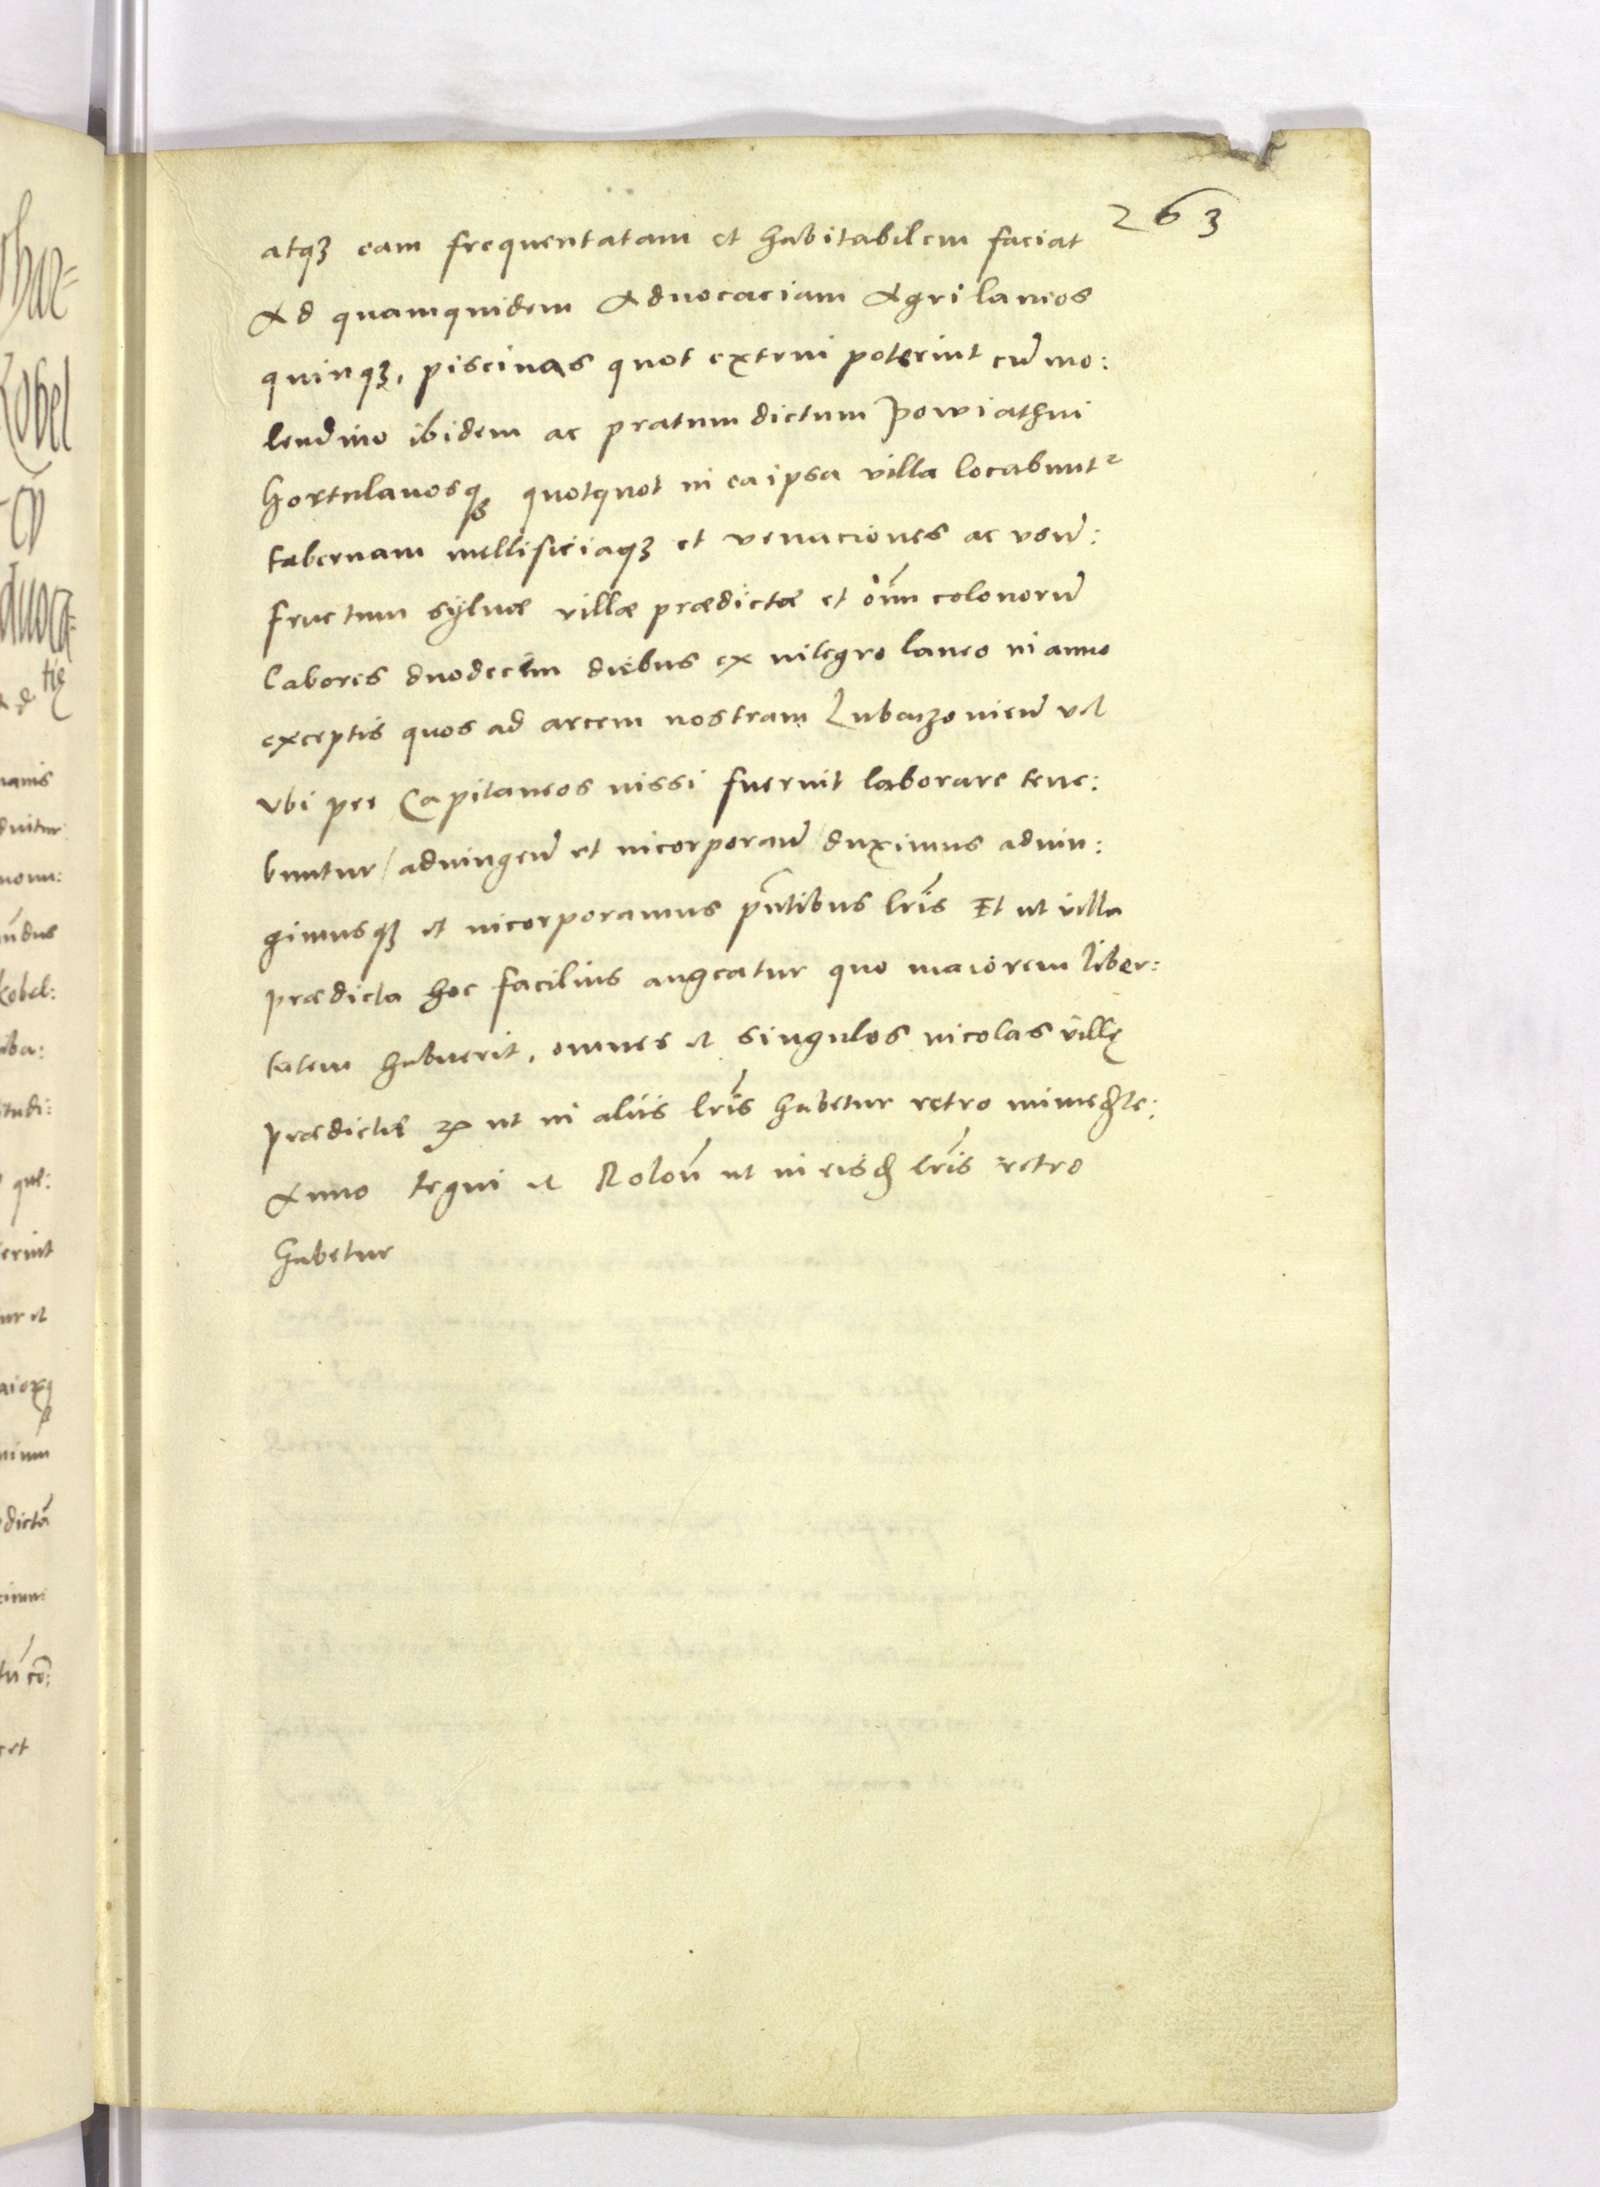 263
atq3 eam frequentatam et habitabilem faciat
Ad quamquidem Advocaciam Agri laneos
quinq3, piscinas quot extrui poterint cũ mo:
lendino ibidem ac pratum dictum Powiathni
hortulanosq3 quotquot in ea ipsa villa locabunt
tabernam mellificiaq3 et venaciones ac usũ:
fructum sylvæ villæ prædictæ et oĩm colonorũ
labores duodecim diebus ex integro laneo in anno
exceptis quos ad arcem nostram vel
ubi per Capitaneos iussi fuerint laborare tene:
buntur / adiungen̄ et incorporan̄ duximus adiun:
gimusq3 et incorporamus pñtibus lr̃is Et ut villa
prædicta hoc facilius augeatur quo maiorem liber:
tatem habuerit, omnes et singulos incolas villę
prædictæ ut in aliis lr̃is habetur retro
Anno regni et Relon̄ ut in eisd lr̃is retro
habetur